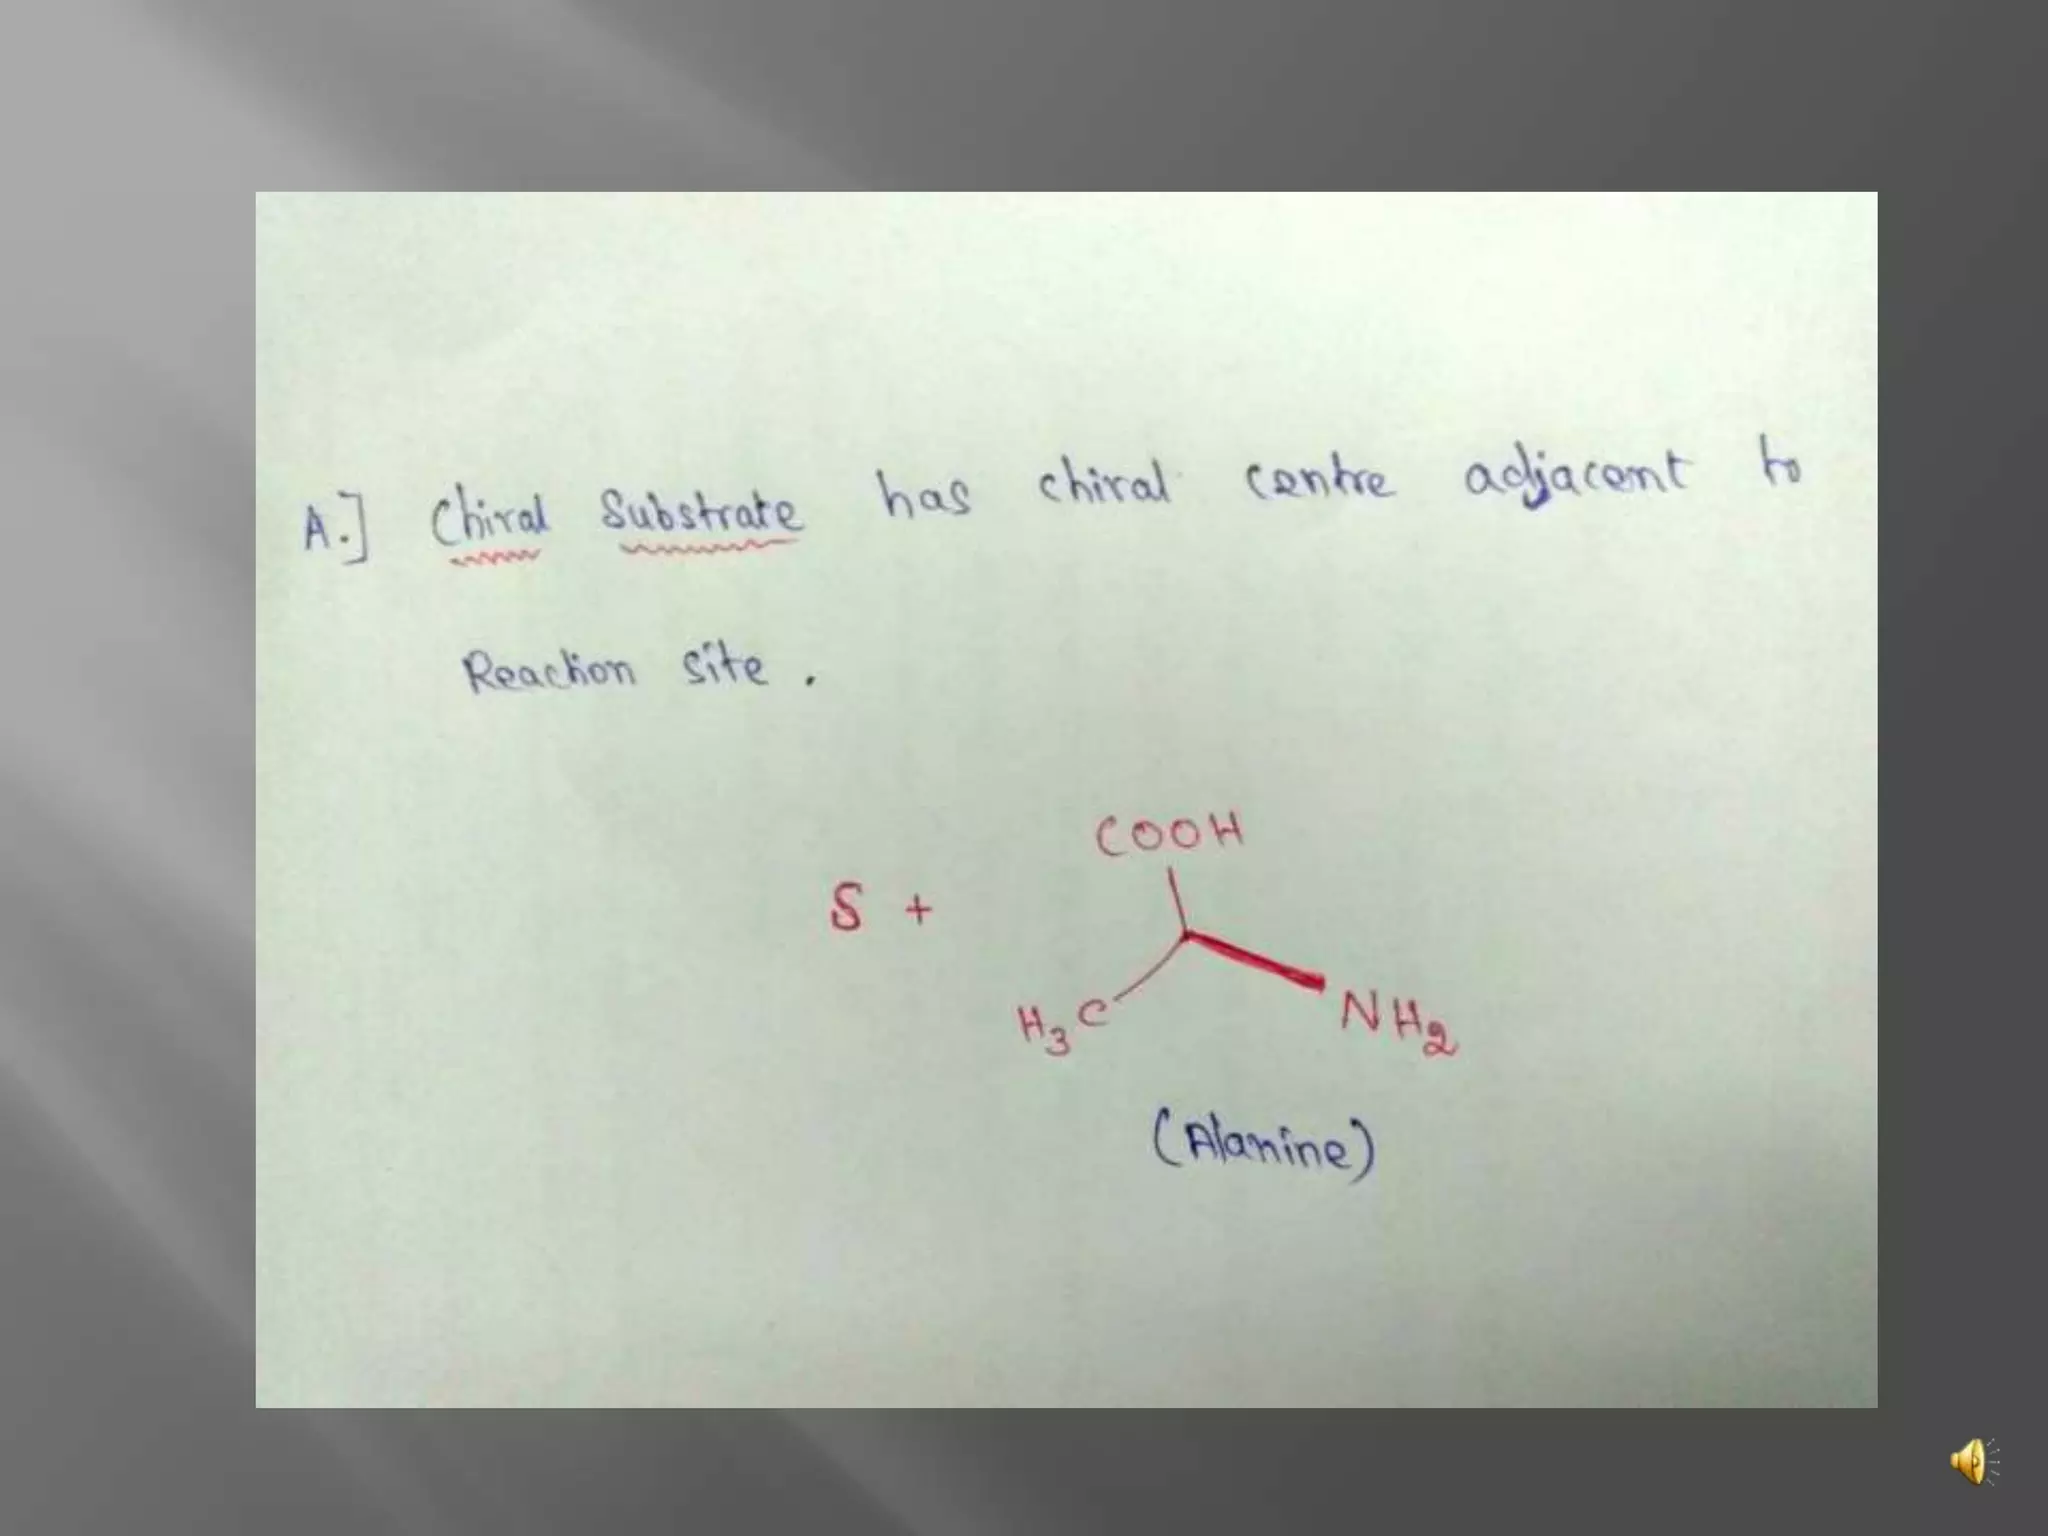 A.] Chiral Substrate has chiral centre adjacent to
Reaction site .
COOH
S +
H3C
NH2
(Alanine)